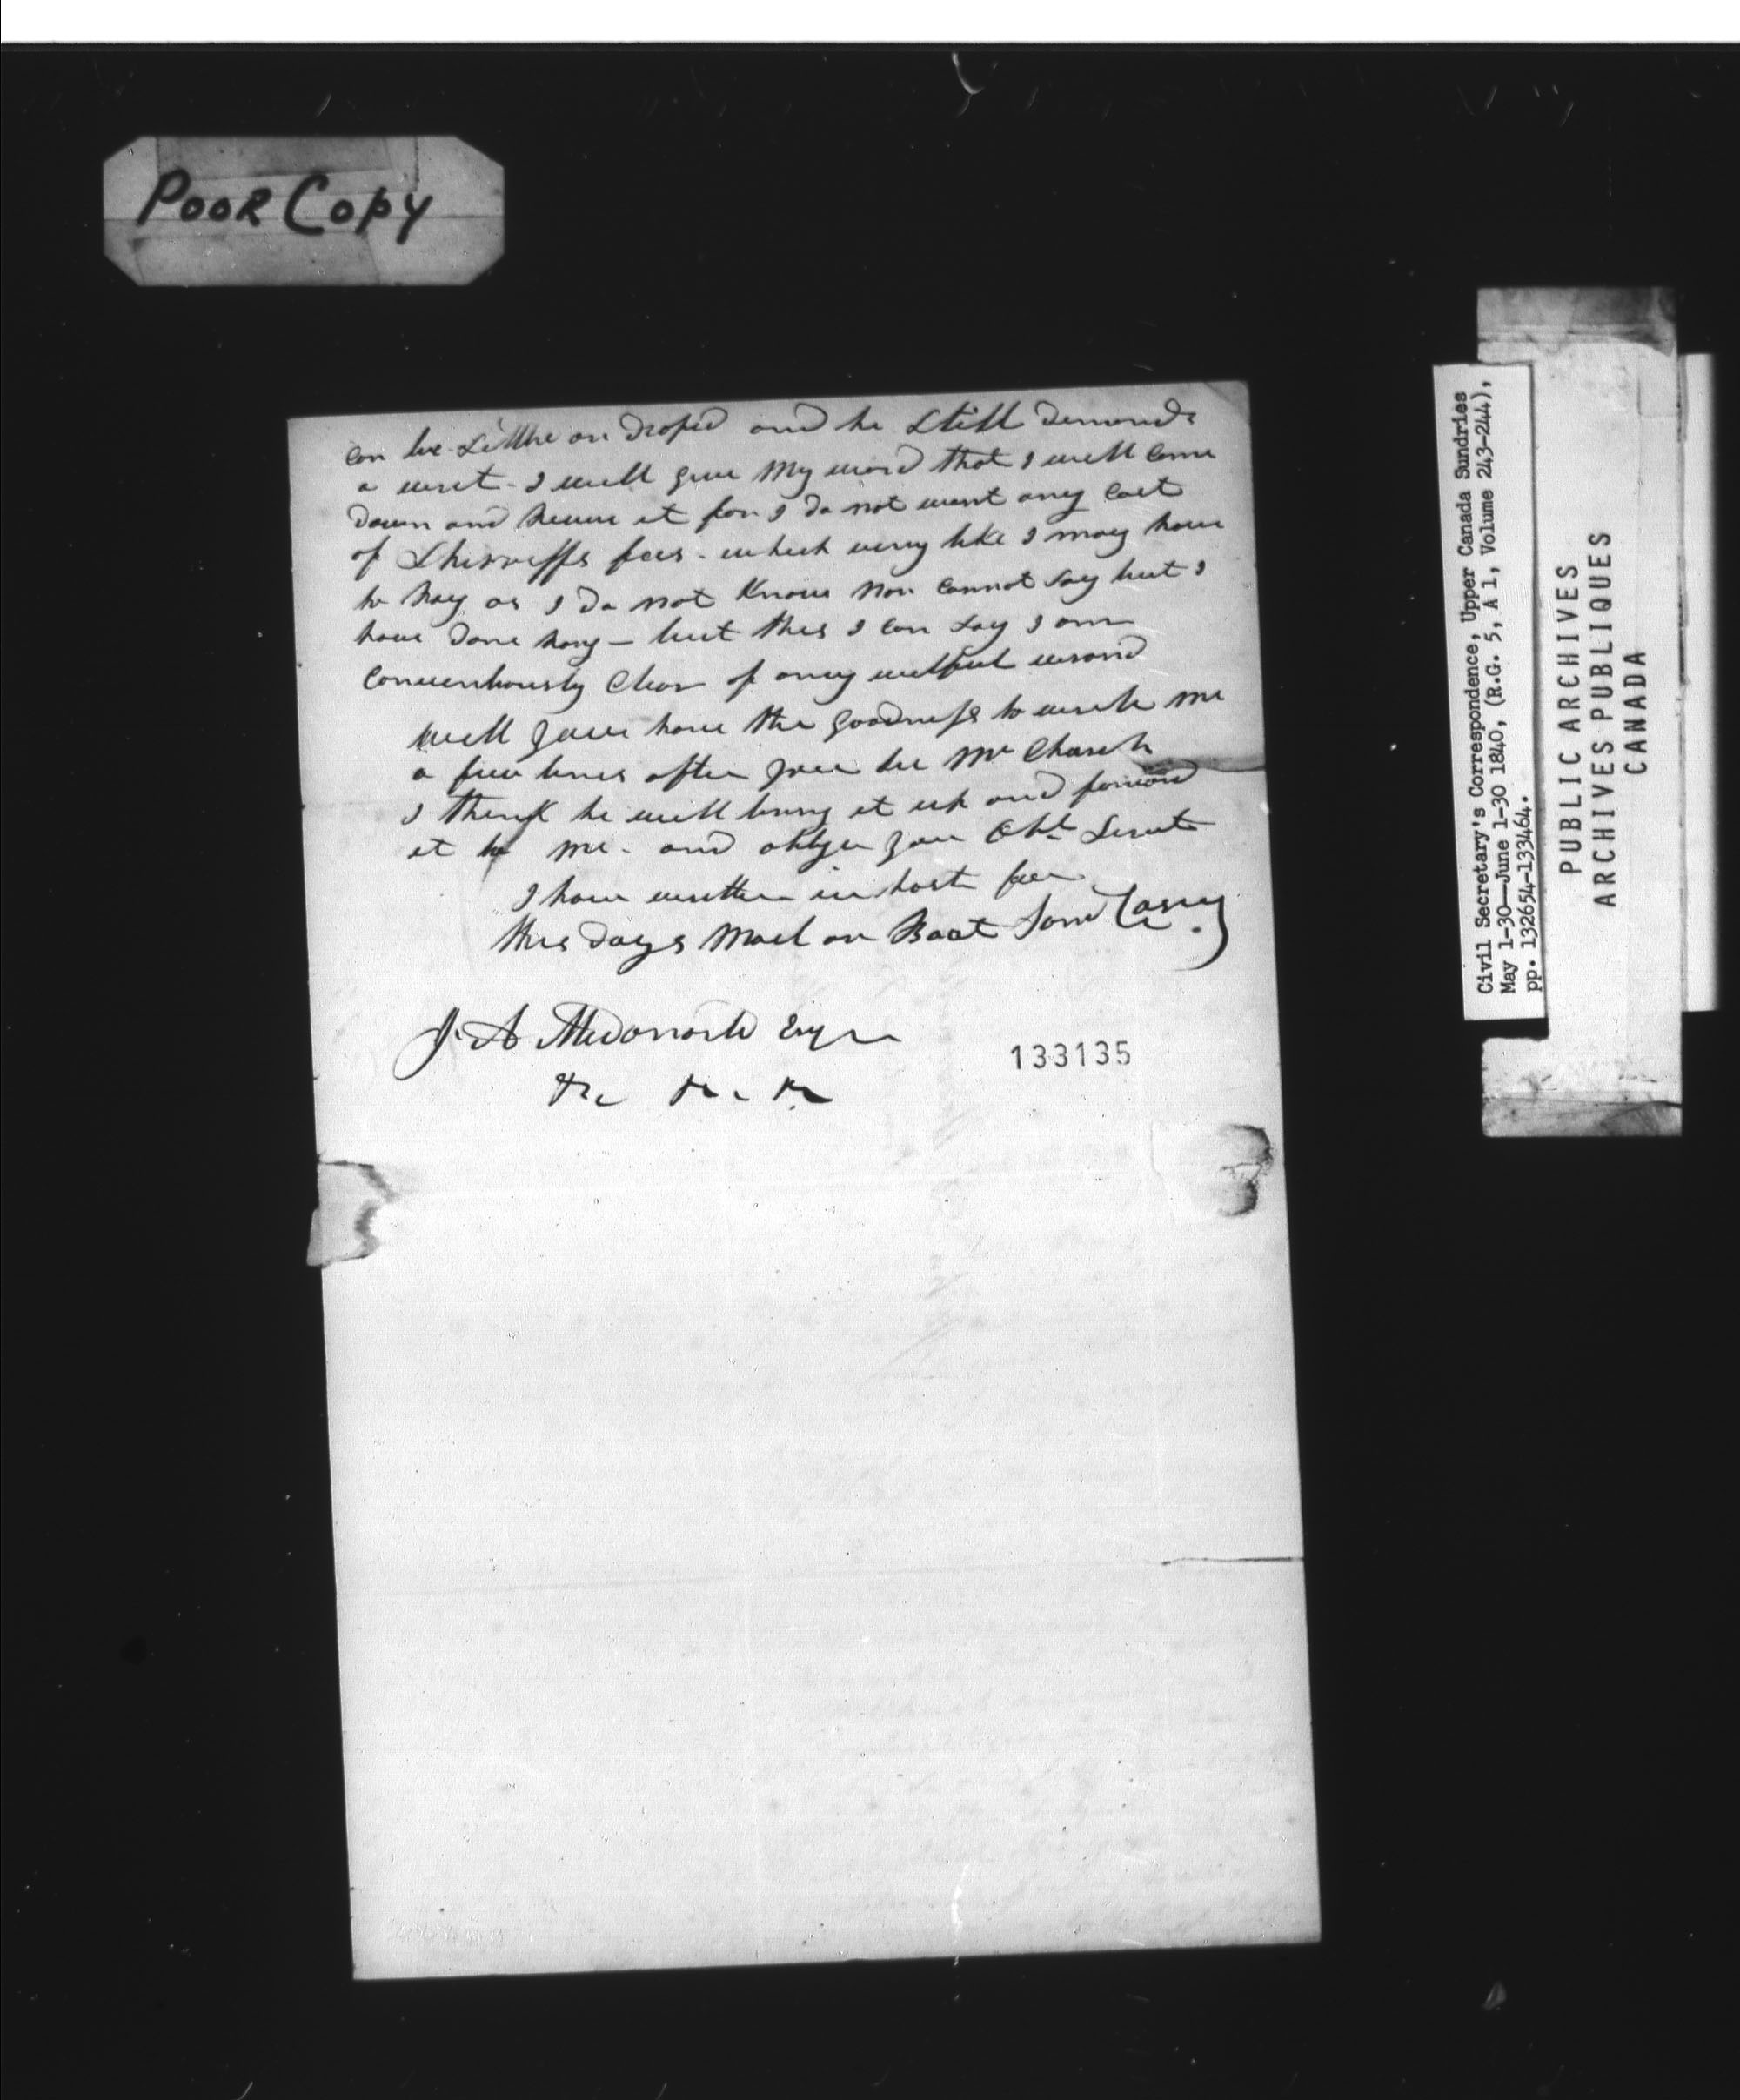 Poor Copy
can be Settle or droped and he Still demands
a writ - I will give my word that I will Come
down and it for I do not want any Cost
of Shirriffs fees - which very like I may have
to pay as I do not Know nor Cannot Say but I
have done - but this I can Say I am
Clear of any willful wrong
will you have the goodness to write me
a few lines after you see Mr Church
I think he will bring it up and forward
it to me - and oblige your Obt Servt
I have written in hast for
this days Mail or Boat Saml Casey
J. A. Mcdonald Esqr
&c &c &c
133135
Civil Secretary's Correspondence, Upper Canada Sundries
May 1-30—June 1-30 1840, (R.G. 5, A 1, Volume 243-244),
pp. 132654-133464.
PUBLIC ARCHIVES
ARCHIVES PUBLIQUES
CANADA